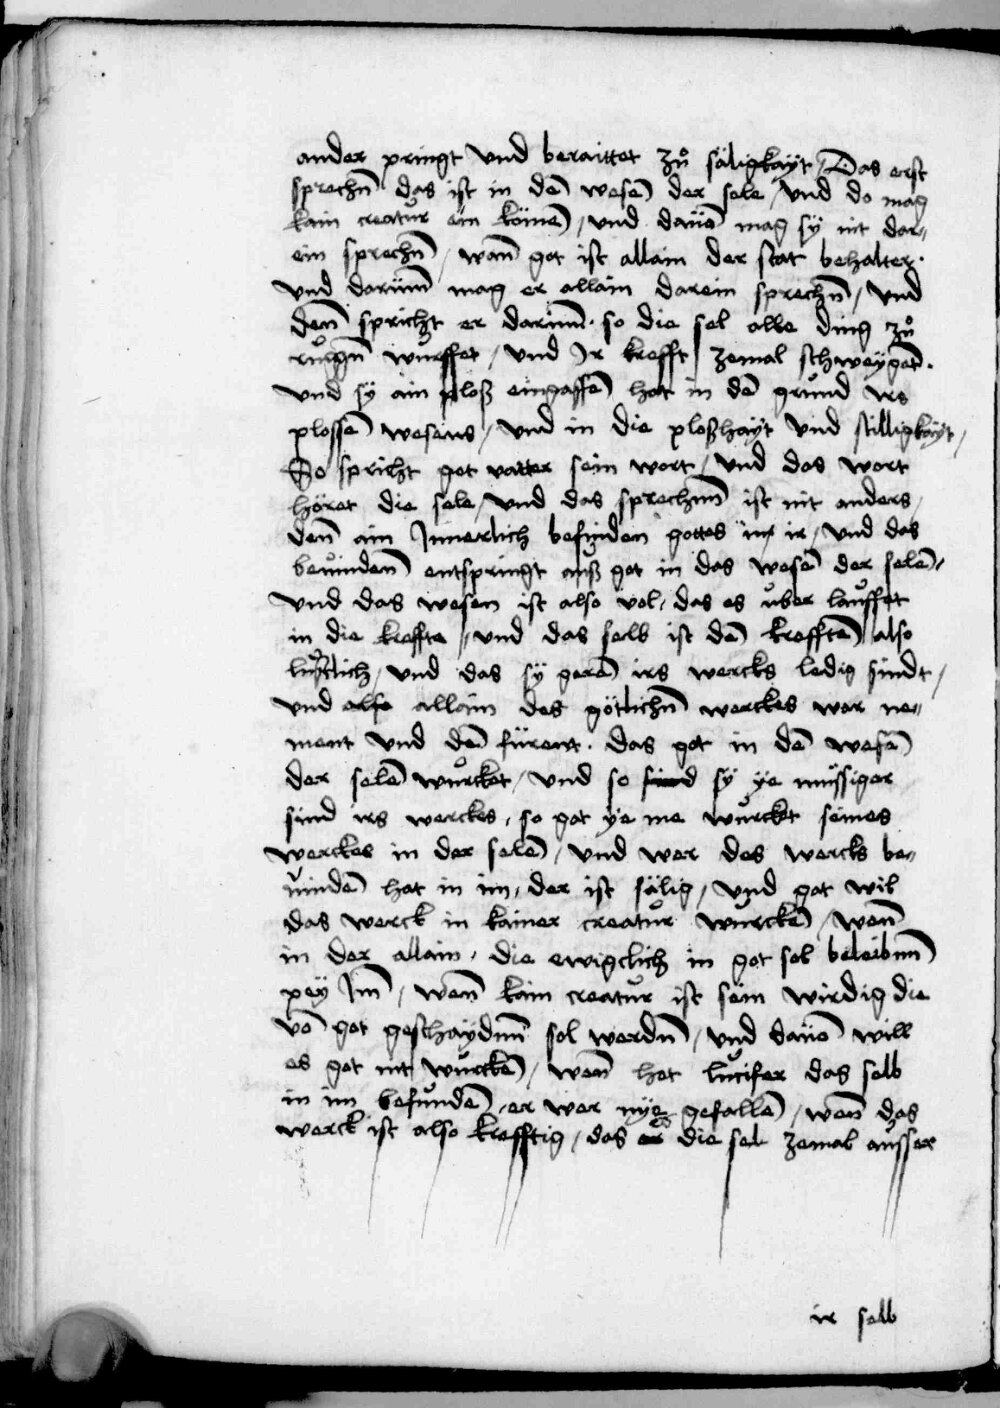 ander pringt vnd beraittet zů säligkayt / Das erst
sprechn̄ das ist in dē wesē der sele / vnd do mag
kain creatur ein kömē / vnd dauō mag sÿ nit dar=
ein sprechn̄ / wan̄ got ist allain der stat behalter ·
vnd darüm̄ mag er allain darein sprechn̄ / vnd
den̄ spricht er darinn̄ · so die sel alle ding zů
rugn̄ würffet / vnd Ir krefft zemal schweÿgēt ·
vnd sÿ ain ploß eingaffē hat in dē grund irs
plossē wesens / vnd in die ploßhaÿt vnd stilligkaÿt /
So spricht got vatter sein wort / vnd das wort
höret die sele / vnd das sprechn̄ ist nit anders /
den̄ ain Innerlich befinden gottes in ir / vnd das
beuinden̄ entspringt auß got in das wesē der selē /
vnd das wesen ist also vol / das es über lauffet
in die kreffte / vnd das selb ist dē krefftē also
lustlich / vnd das sÿ gerē irs wercks ledig sindt /
vnd allain des götlichn̄ werckes war ne=
ment vnd dē fürent · das got in dē wesē
der selē würcket / vnd so sÿ ye müssiger
sind irs werckes / so got ÿe me würckt seines
werckes in der selē / vnd wer des wercks be=
uindē hat in im / der ist sälig / vnd got wil
das werck in kainer creatur würckē / wen̄
in der allain / die ewigclich in got sol beleibnn̄
peÿ Im̄ / wen̄ kain creatur ist sein wirdig die
vō got geschaÿdnn̄ sol werdn̄ / vnd dauō will
es got nit würckē / wen̄ het lucifer das selb
in im befundē / er wer nÿe gefallē / wen̄ das
werck ist also krefftig / das es die sel zemal ausser
ir selb